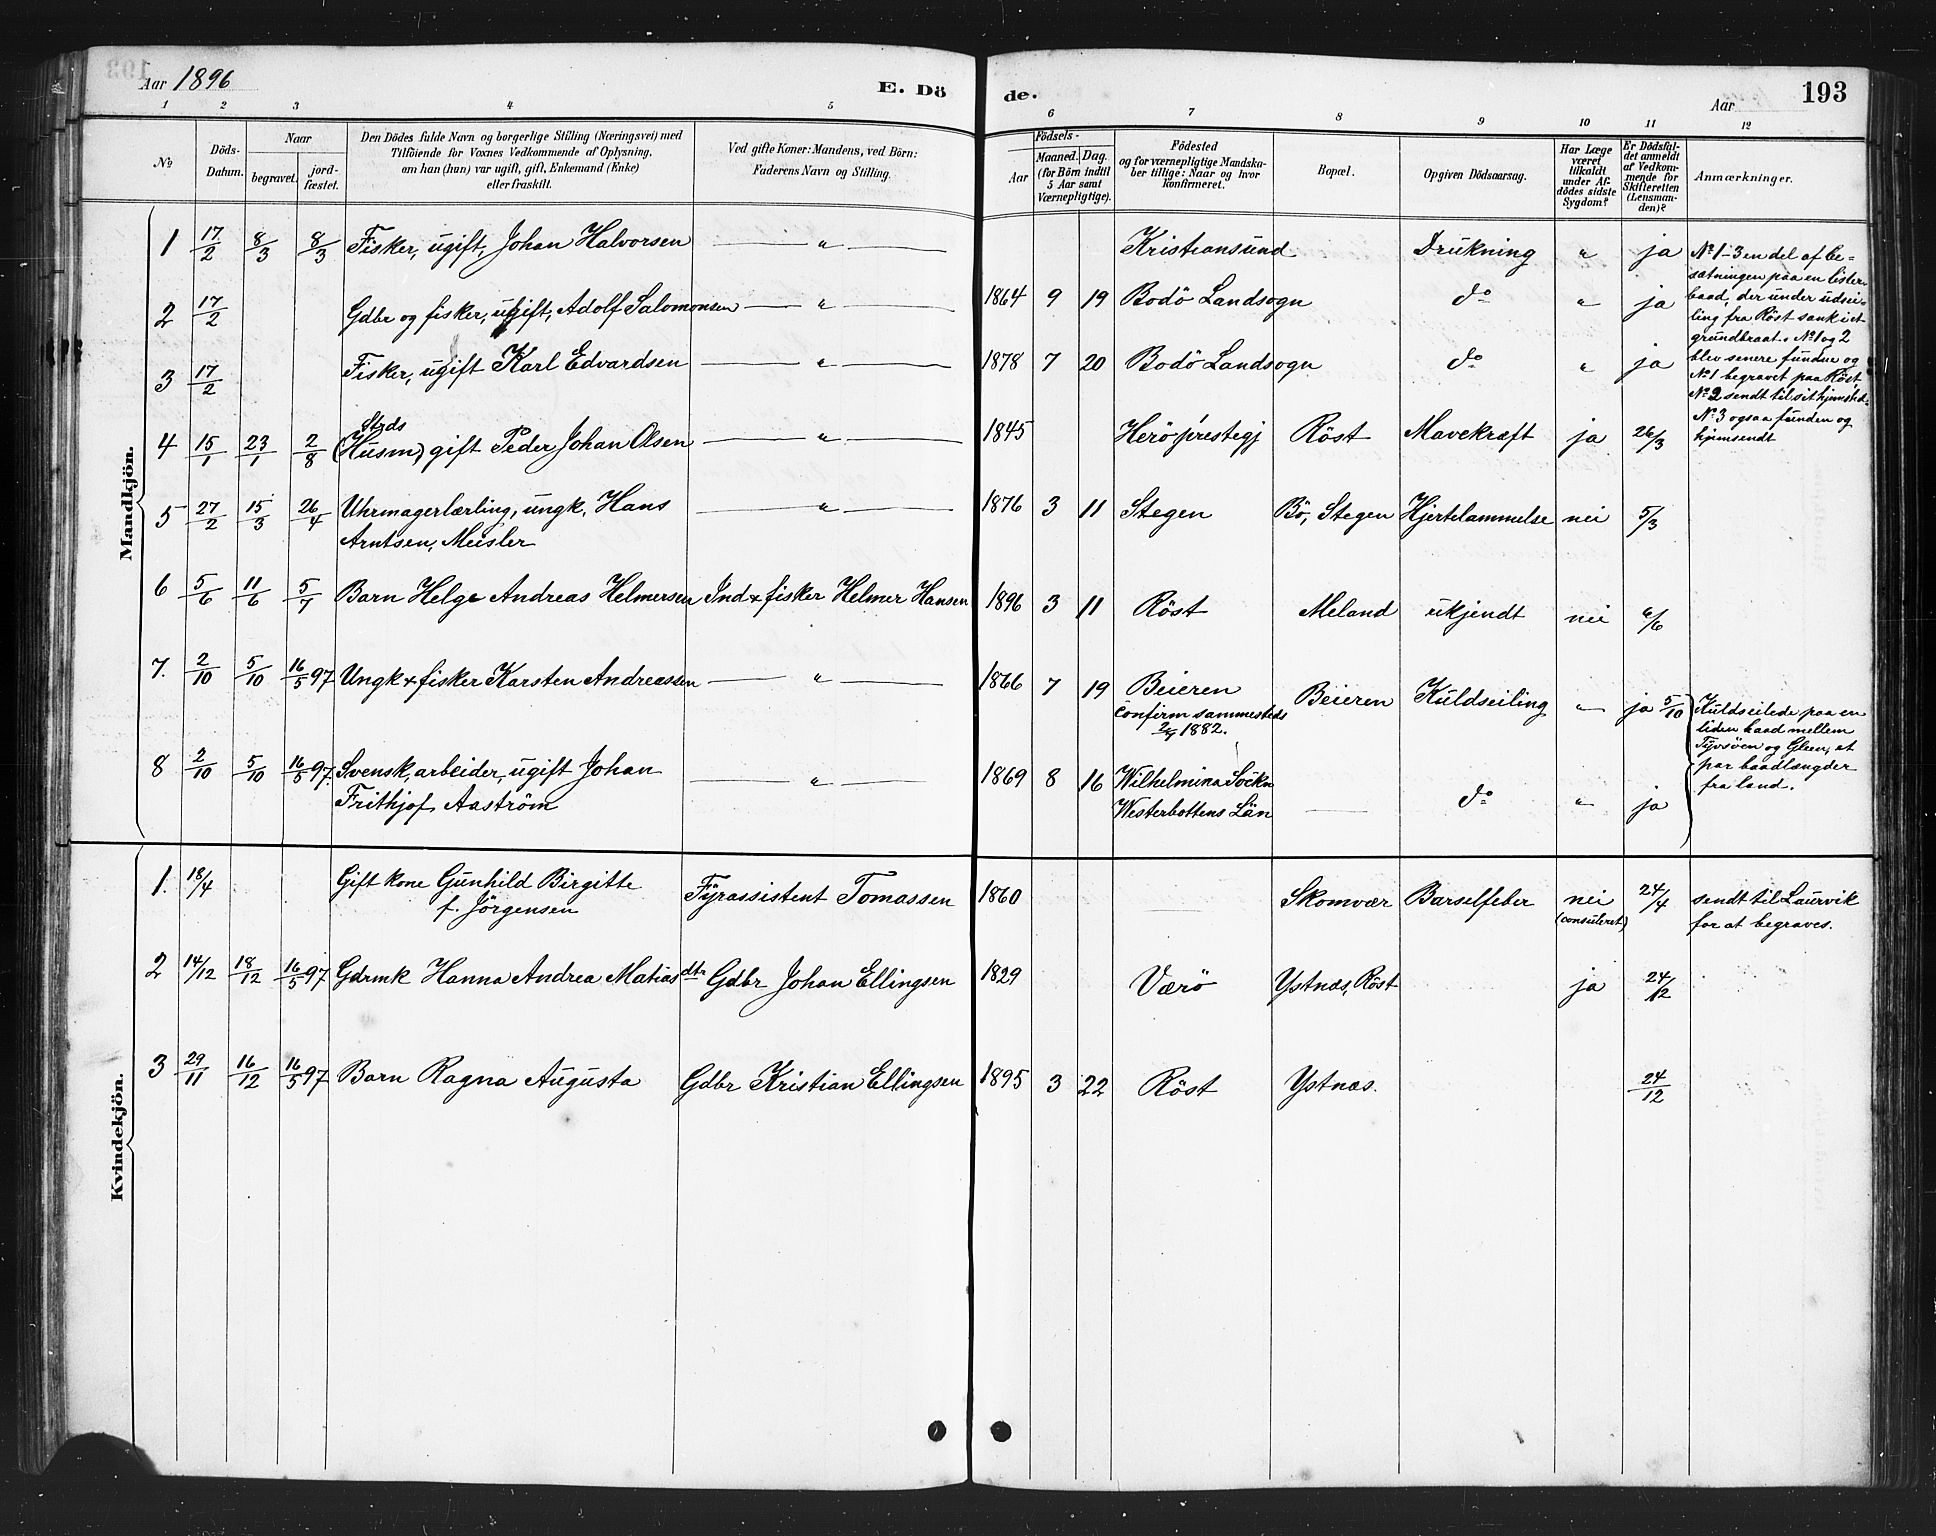 Aar 1896 E. Döde. Aar 193
1 2 3 4 5 6 7 8 9 10 11 12
No
Döds-Datum.
Naar
begravet.
jord-fæstet.
Den Dödes fulde Navn og borgerlige Stilling (Næringsvei) med
Tilföiende for Voxnes Vedkommende af Oplysning,
om han (hun) var ugift, gift, Enkemand (Enke)
eller fraskilt.
Ved gifte Koner: Mandens, ved Börn:
Faderens Navn og Stilling.
Födsels-
Aar
Maaned. Dag.
(for Börn indtil
5 Aar samt
Værnepligtige).
Födested
og for værnepligtige Mandska-
ber tillige: Naar og hvor
konfirmeret.
Bopæl.
Opgiven Dödsaarsag.
Har Læge
været
tilkaldt
under Af-
dödes sidste
Sygdom?
Er Dödsfal-
det anmeldt
af Vedkom-
mende for
Skifteretten
(Lensman-
den)?
Anmærkninger.
Mandkjön.
1 17/2 8/3 8/3 Fisker, ugift, Johan Halvorsen — " — Kristiansund Drukning " ja
2 17/2 Gdbr og fisker, ugift, Adolf Salomonsen — " — 1864 9 19 Bodö Landsogn do " ja
3 17/2 Fisker, ugift Karl Edvardsen — " — 1878 7 20 Bodö Landsogn do " ja
No 1-3 en del af be-
sætningen paa en lister-
baad, der under udsei-
ling fra Röst sank i et
grundbraat. No 1 og 2
blev senere fundne og
No 1 begravet paa Röst,
No 2 sendt til sit hjemsted.
No 3 ogsaa funden og
hjemsendt
Stds
4 15/1 23/1 2/8 (Husm) gift Peder Johan Olsen — " — 1845 Herö prestegj Röst Mavekræft ja 26/3
5 27/2 15/3 26/4 Uhrmagerlærling, ungk, Hans — " — 1876 3 11 Stegen Bö, Stegen Hjertelammelse nei 5/3
Arntsen, Meisler
6 5/6 11/6 5/7 Barn Helge Andreas Helmersen Ind & fisker Helmer Hansen 1896 3 11 Röst Meland ukjendt nei 6/6
7. 2/10 5/10 16/5 97 Ungk & fisker Karsten Andreassen — " — 1866 7 19 Beieren Beieren Kuldseiling " ja 5/10
confirm sammesteds
2/7 1882.
Kuldseilede paa en
liden baad mellem
Tyvsöen og Gleen, et
par baadlængder
fra land.
8 2/10 5/10 16/5 97. Svensk, arbeider, ugift Johan — " — 1869 8 16 Wilhelmina Sockn — do " ja
Frithjof Aaström Westerbottens Län
Kvindekjön.
1. 18/4 Gift kone Gunhild Birgitte Fyrassistent Tomassen 1860 — Skomvær Barselfeber nei 24/4 sendt til Laurvik
f. Jörgensen (consuleret) for at begraves.
2 14/12 18/12 16/5 97 Gdrmk Hanna Andrea Matiasdtr Gdbr Johan Ellingsen 1829 Værö Ystnæs, Röst ja 24/12
3 29/11 16/12 16/5 97 Barn Ragna Augusta Gdbr Kristian Ellingsen 1895 3 22 Röst Ystnæs. 24/12